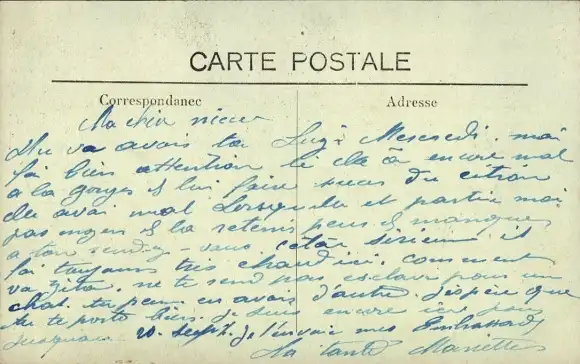 CARTE POSTALE
Correspondanec
Adresse
Ma chèr niece
Tu va avais ta Luzi Mescredi. mai
fai bien attention li ela à encore mal
a la gorges & lui faire suces du citron
ele avai mal Lorsquela et partie mai
pas moyen & la retenir peur & manques
a ton rendez-vous cetai sérieux il
fai toujours très chaud ici. comment
va zita, ne te send pas esclave pour un
chat. tu peux en avais d'autre. j'espère que
tu te porte bien. je suis encore ici pour
jusquau 20. sept. je t'envoir mes Embassades
ta tante Mariette